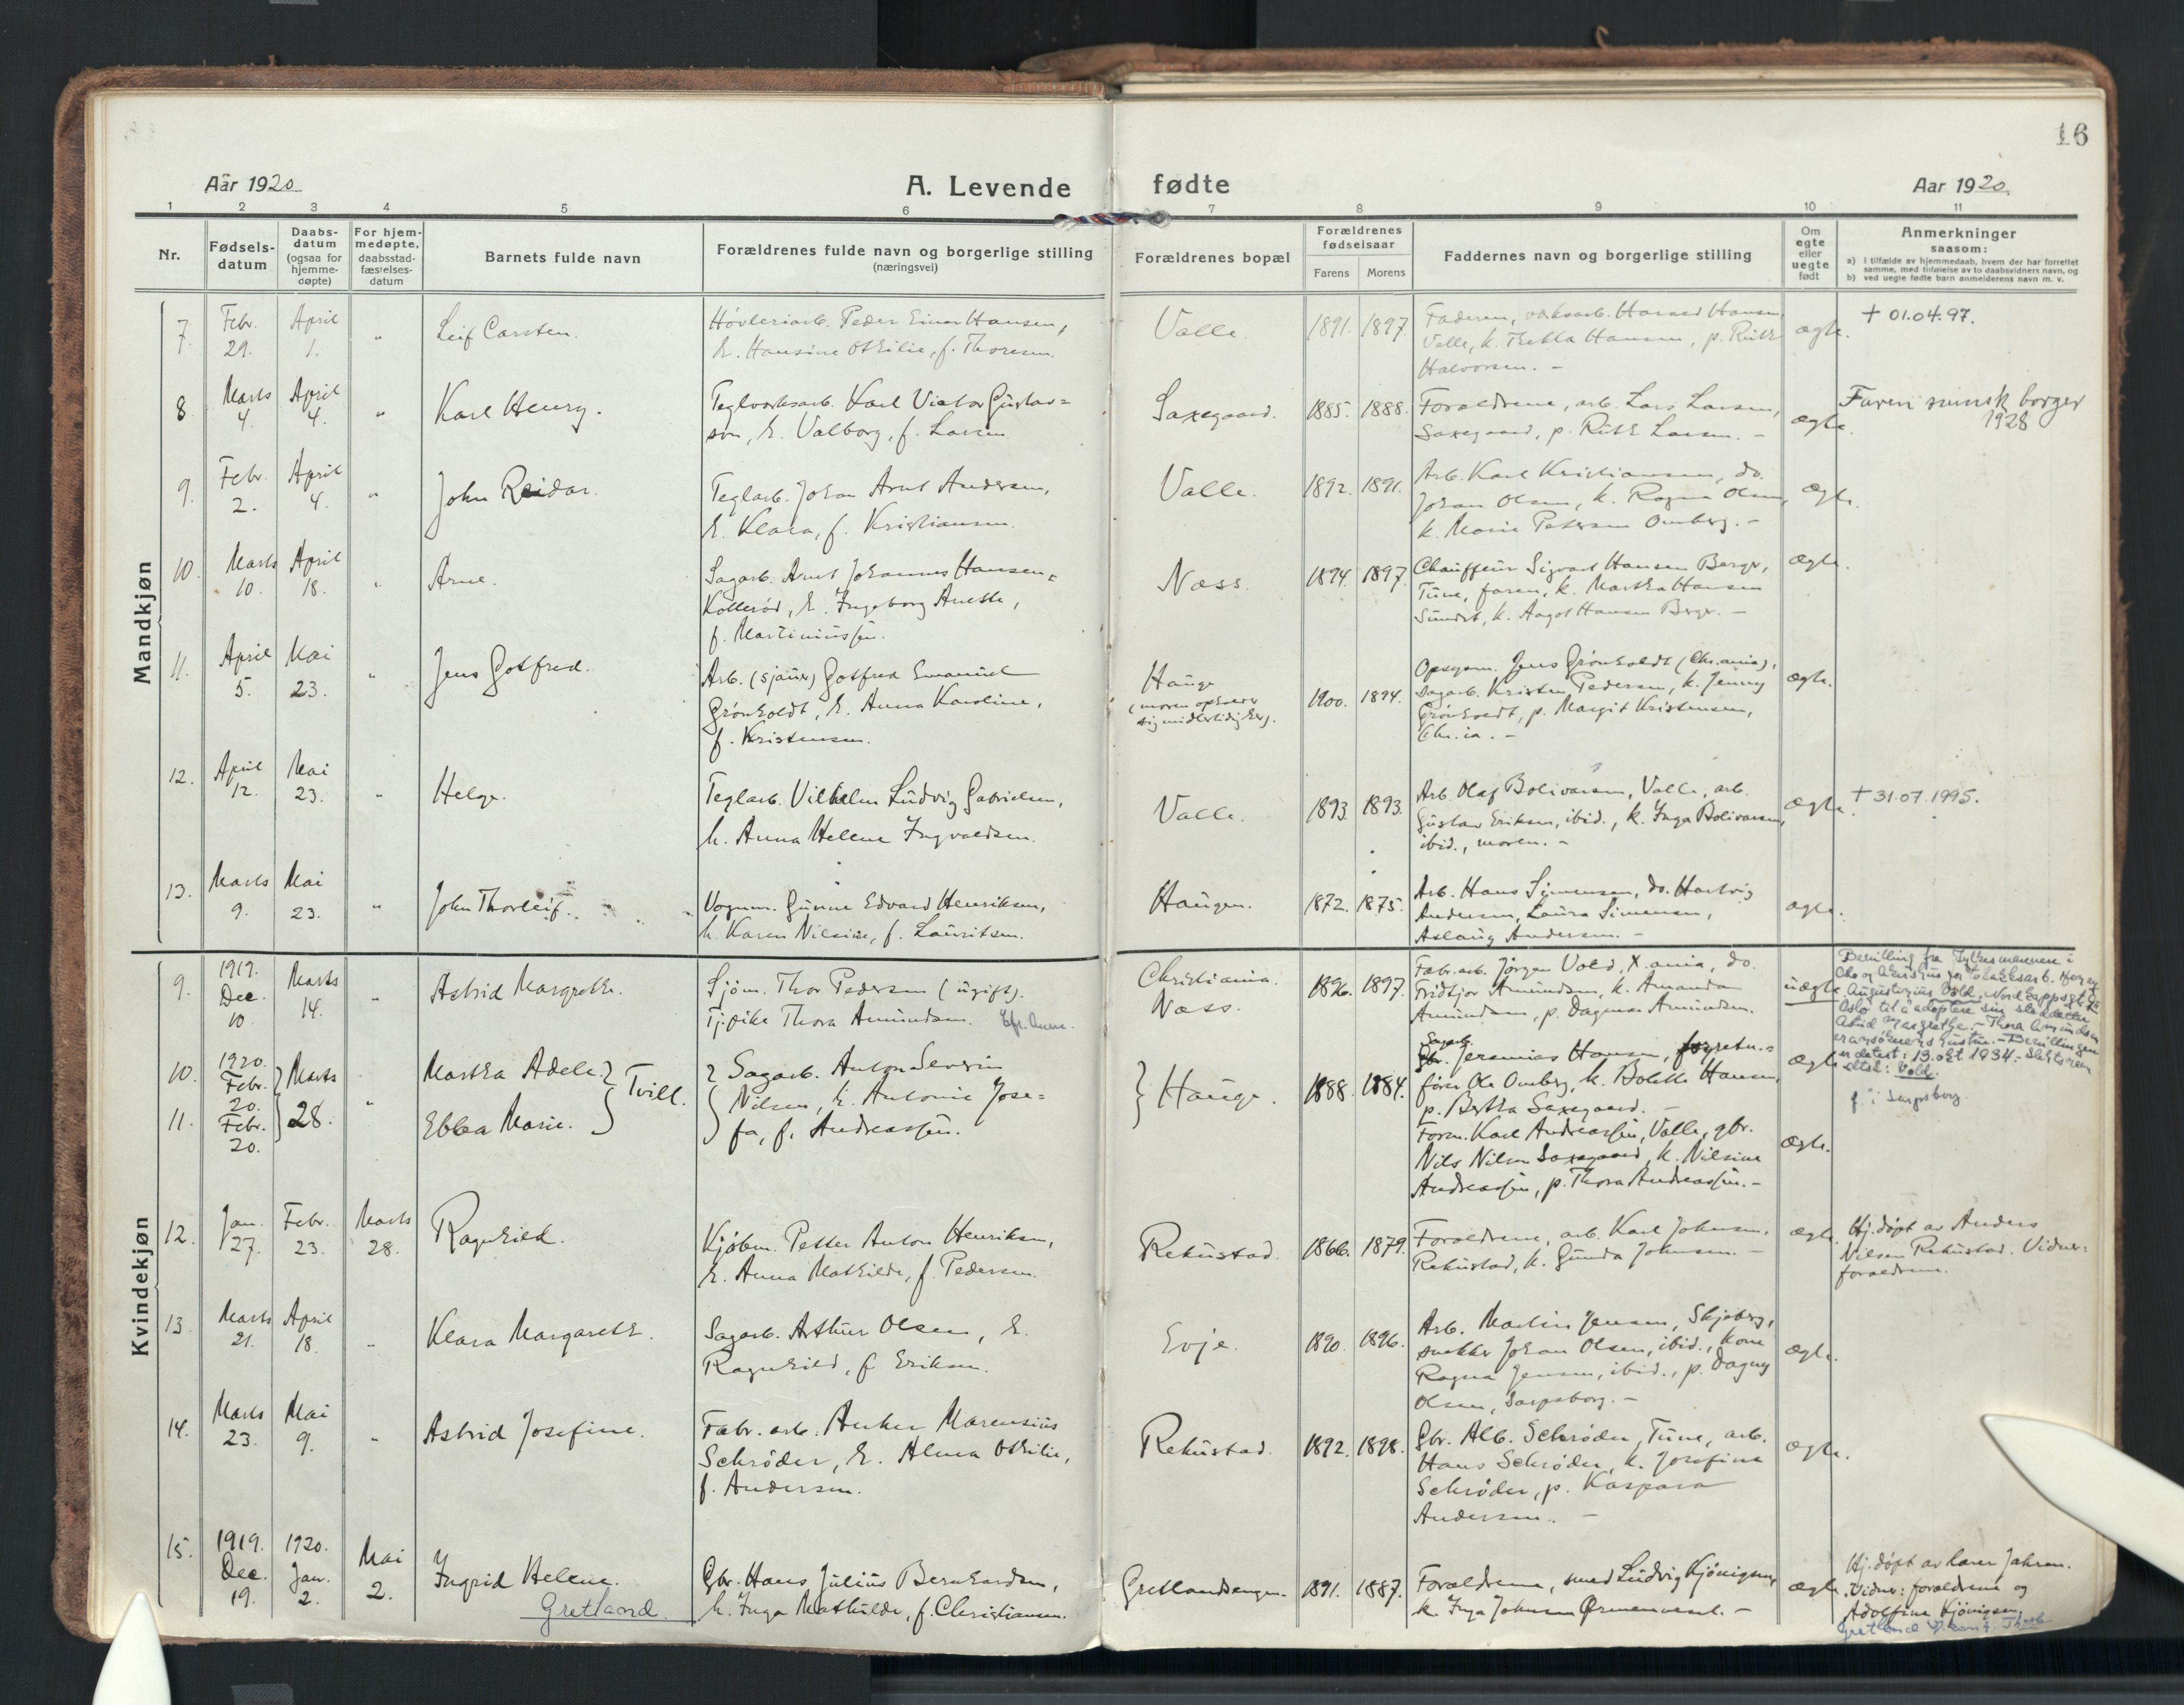 16
Aar 1920.
A. Levende
fødte
Aar 1920.
1 2 3 4 5 6 7 8 9 10 11
Nr.
Fødsels-
datum
Daabs-
datum
(ogsaa for
hjemme-
døpte)
For hjem-
medøpte,
daabsstad-
fæstelses-
datum
Barnets fulde navn
Forældrenes fulde navn og borgerlige stilling
(næringsvei)
Forældrenes bopæl
Forældrenes
fødselsaar
Farens Morens
Faddernes navn og borgerlige stilling
Om
egte
eller
uegte
født
Anmerkninger
saasom:
a) i tilfælde av hjemmedaab, hvem der har forrettet
samme, med tilføielse av to daabsvidners navn, og
b) ved uegte fødte barn anmelderens navn m. v.
Mandkjøn
7.
Febr.
29.
April
1.
"
Leif Carsten.
Høvleriarb. Peder Einar Hansen,
h. Hansine Othilie, f. Thoresen.
Valle.
1891. 1897.
Faderen, Harald Hansen,
Valle, k. Thekla Hansen, p. Ruth
Halvorsen. -
ægte.
+ 01.04.97.
8.
Marts
4.
April
4.
"
Karl Henry.
Teglverksarb. Karl Victor Gustav=
son, h. Valborg, f. Larsen.
Saxegaard.
1885. 1888.
Forældrene, arb. Lars Larsen,
Saxegaard, p. Ruth Larsen. -
ægte.
Faren svensk borger
1928
9.
Febr.
2.
April
4.
"
John Reidar.
Teglarb. Johan Arnt Andersen,
h. Klara, f. Kristiansen.
Valle.
1892. 1891.
Arb. Karl Kristiansen, do.
Johan Olsen, k. Ragna Olsen,
k. Marie Petersen Omberg. -
ægte.
10.
Marts
10.
April
18.
"
Arne.
Sagarb. Arnt Johannes Hansen=
Kollerød, h. Ingeborg Anette,
f. Martiniussen.
Næss.
1894. 1897.
Chauffeur Sigvart Hansen Berge,
Tune, faren, k. Martha Hansen
Sundet, k. Aagot Hansen Berge. -
ægte.
11.
April
5.
Mai
23.
"
Jens Gotfred.
Arb. (sjauer) Gotfred Emanuel
Grønholdt, h. Anna Karoline,
f. Kristensen.
Hauge
(moren opholder
sig midlertidig her).
1900. 1894.
Opsynsm. Jens Grønholdt (Chr.ania),
sagarb. Kristen Pedersen, k. Jenny
Grønholdt, p. Margit Kristensen,
Chr.ia. -
ægte.
12.
April
12.
Mai
23.
"
Helge.
Teglarb. Vilhelm Ludvig Gabrielsen,
h. Anna Helene Ingvaldsen.
Valle.
1893. 1893.
Arb. Olaf Bolivarsen, Valle, arb.
Gustav Eriksen, ibid., k. Inga Bolivarsen,
ibid., moren. -
ægte.
+ 31.07.1995.
13.
Marts
9.
Mai
23.
"
John Thorleif.
Vognm. Gunne Edvard Henriksen,
h. Karen Nilsine, f. Lauritsen.
Haugen.
1872. 1875.
Arb. Hans Simensen, do. Hartvig
Andersen, Laura Simensen,
Aslaug Andersen. -
ægte.
Kvindekjøn
9.
1919.
Dec.
10
Marts
14.
"
Astrid Margrethe.
Sjøm. Thor Pedersen (ugift).
Tj.pike Thora Amundsen.
Christiania.
Næss.
1896. 1897.
Fabr.arb. Jørgen Vold, X.ania, do.
Fridtjov Amundsen, k. Amanda
Amundsen, p. Dagmar Amundsen.
uægte
Bevilling fra Fylkesmannen i
Oslo og Akershus for
Augustinius Vold, Nordkappgt.
Oslo til å adoptere sin steddatter
Astrid Margrethe. - Thora Amundsen
er ansøkerens hustru. - Bevillingen
er datert: 13. okt 1934. - Slektsnavn
: Vold.
f. i Sarpsborg.
10.
1920.
Febr.
20.
11.
Febr.
20.
Marts
28.
"
Martha Adele.
Ebba Marie.
Tvill.
Sagarb. Anton Severin
Nilsen, h. Antonie Jose=
fa, f. Andreassen.
Hauge.
1888. 1884.
Sagarb.
Jeremias Hansen, forretn.=
fører Ole Omberg, k. Bolette Hansen,
p. Bertha Saxegaard. -
Form. Karl Andreassen, Valle, gbr.
Nils Nilsen Saxegaard, k. Nilsine
Andreassen, p. Thora Andreassen. -
ægte
ægte.
12.
Jan.
27.
Febr.
23.
Marts
28.
Ragnhild.
Kjøbm. Petter Anton Henriksen,
h. Anna Mathilde, f. Pedersen.
Rekustad.
1866. 1879.
Forældrene, arb. Karl Johnsen,
Rekustad, k. Gunda Johnsen. -
ægte.
Hj.døpt av Anders
Nilsen Rekustad. Vidner:
forældrene.
13.
Marts
21.
April
18.
"
Klara Margareth.
Sagarb. Arthur Olsen, h.
Ragnhild, f. Eriksen.
Evje.
1890. 1896.
Arb. Martin Jensen, Skjeberg,
snekker Johan Olsen, ibid., kone
Ragna Jensen, ibid., p. Dagny
Olsen, Sarpsborg. -
ægte.
14.
Marts
23.
Mai
9.
"
Astrid Josefine.
Fabr. arb. Anker Marensius
Schrøder, h. Alma Othilie,
f. Andersen.
Rekustad.
1892. 1898.
Gbr. Alb. Schrøder, Tune, arb.
Hans Schrøder, k. Josefine
Schrøder, p. Kaspara
Andersen. -
ægte.
15.
1919.
Dec.
19.
1920.
Jan.
2.
Mai
2.
Ingrid Helene.
Gretland.
Gbr. Hans Julius Bernhardsen,
h. Inga Mathilde, f. Christiansen.
Gretlandsengen.
1891. 1887.
Forældrene, smed Ludvig Kjønigsen,
k. Inga Johnsen Ørmenveset. -
ægte.
Hj.døpt av lærer Jahren.
Vidner: forældrene og
Adolfine Kjønigsen.
Gretland